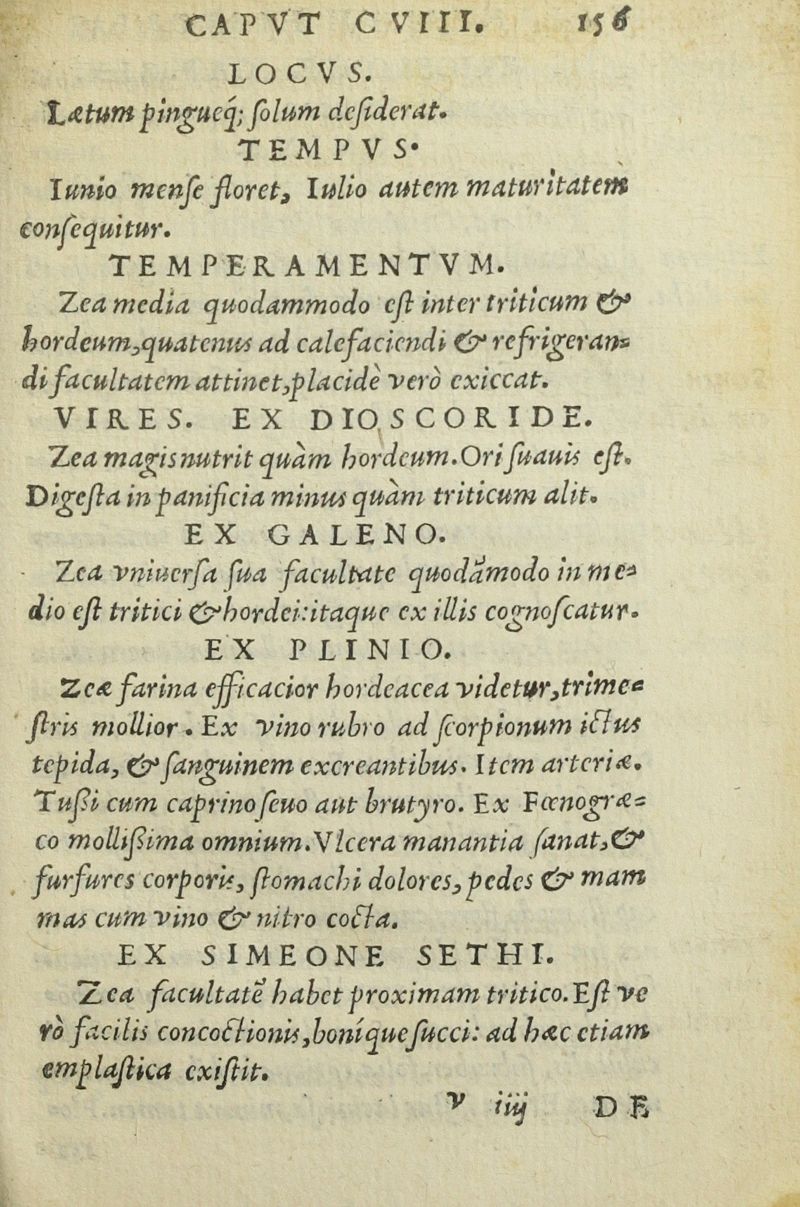 CAPVT CVIII. 156
LOCVS.
Lætum pingueq́; ſolum deſiderat.
TEMPVS.
Iunio menſe floret, Iulio autem maturitatem
conſequitur.
TEMPERAMENTVM.
Zea media quodammodo eſt inter triticum &
hordeum,quatenus ad calefaciendi & refrigeran=
di facultatem attinet,placidè verò exiccat.
VIRES. EX DIOSCORIDE.
Zea magis nutrit quàm hordeum.Ori ſuauis eſt.
Digeſta in panificia minus quàm triticum alit.
EX GALENO.
Zea vniuerſa ſua facultate quodāmodo in me=
dio eſt tritici & hordei:itaque ex illis cognoſcatur.
EX PLINIO.
Zeæ farina efficacior hordeacea videtur,trime=
ſtris mollior. Ex vino rubro ad ſcorpionum ictus
tepida, & ſanguinem excreantibus. Item arteriæ.
Tußi cum caprino ſeuo aut brutyro. Ex Fœnogræ=
co mollißima omnium.Vlcera manantia ſanat,&
furfures corporis, ſtomachi dolores,pedes & mam
mas cum vino & nitro cocta.
EX SIMEONE SETHI.
Zea facultatē habet proximam tritico.Eſt ve
rò facilis concoctionis,boníque ſucci: ad hæc etiam
emplaſtica exiſtit.
v iiij DE